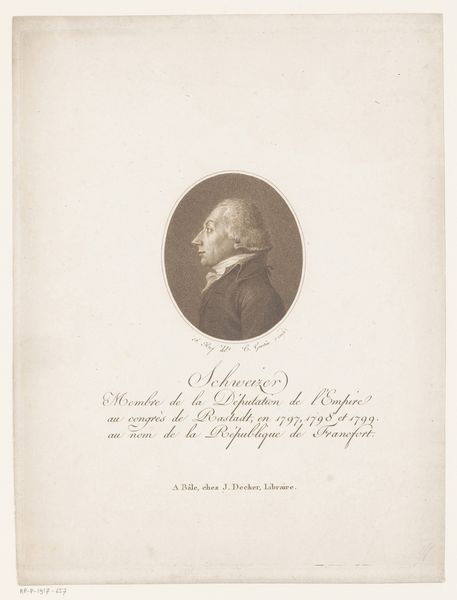 C. Guérin
Schweizer
Membre de la Députation de l'Empire
au congrès de Rastadt, en 1797, 1798 et 1799.
au nom de la République de Francfort.
A Bâle, chez J. Decker, Libraire.
RP-P-1917-657